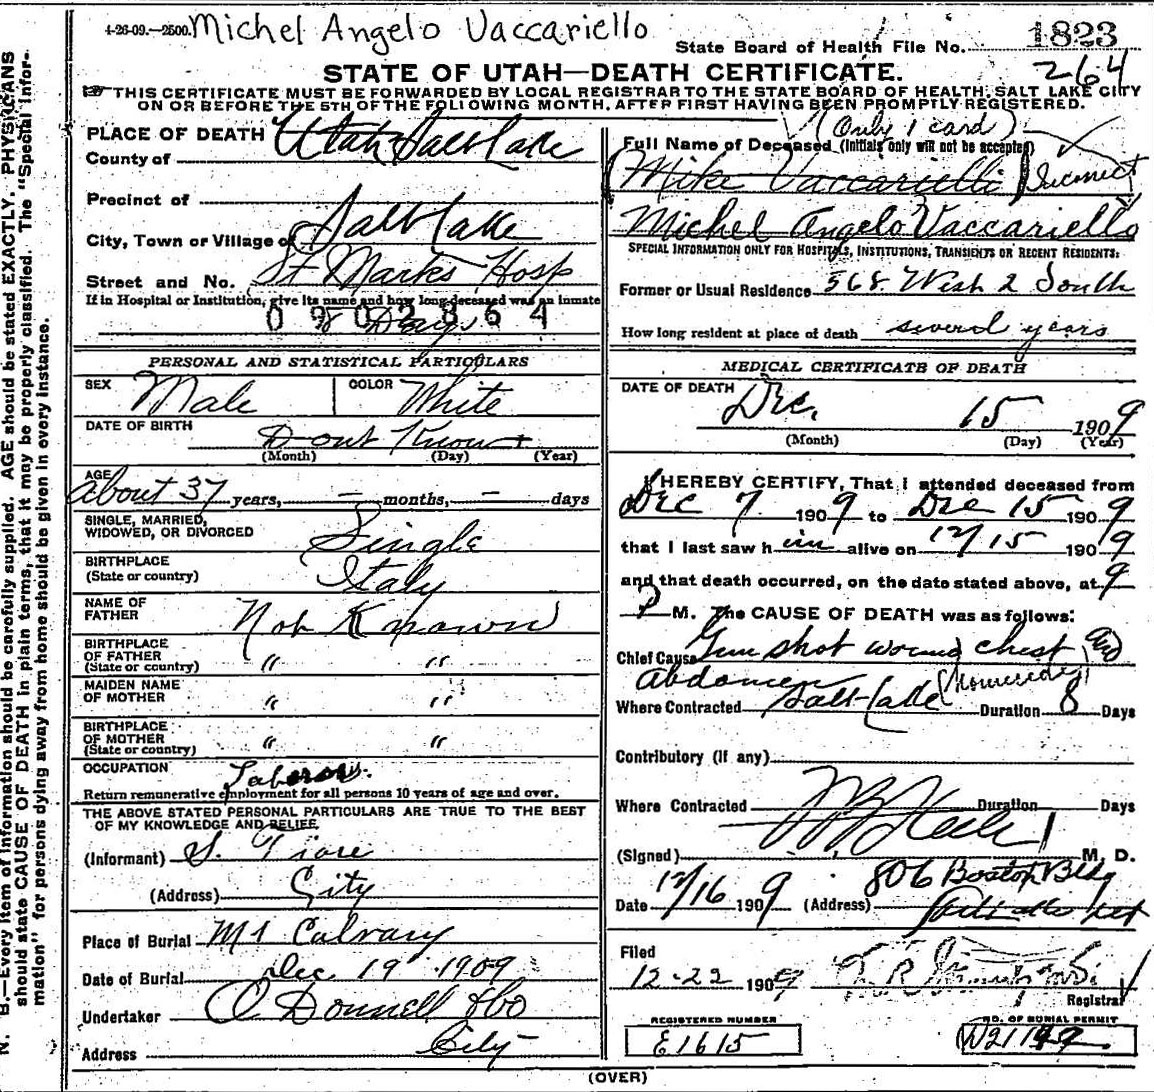 4-26-09.—2500. Michel Angelo Vaccariello
State Board of Health File No. 1823
264
STATE OF UTAH—DEATH CERTIFICATE.
THIS CERTIFICATE MUST BE FORWARDED BY LOCAL REGISTRAR TO THE STATE BOARD OF HEALTH, SALT LAKE CITY
ON OR BEFORE THE 5TH OF THE FOLLOWING MONTH, AFTER FIRST HAVING BEEN PROMPTLY REGISTERED.
N. B.—Every item of information should be carefully supplied. AGE should be stated EXACTLY. PHYSICIANS
should state CAUSE OF DEATH in plain terms, that it may be properly classified. The "Special Infor-
mation" for persons dying away from home should be given in every instance.
PLACE OF DEATH
County of Utah Salt Lake
Precinct of
City, Town or Village of Salt Lake
Street and No. St Marks Hosp
If in Hospital or Institution, give its name and how long deceased was an inmate
0902864
8 Days
PERSONAL AND STATISTICAL PARTICULARS
SEX Male COLOR White
DATE OF BIRTH Dont Know
(Month) (Day) (Year)
AGE
About 37 years, — months, — days
SINGLE, MARRIED,
WIDOWED, OR DIVORCED Single
BIRTHPLACE
(State or country) Italy
NAME OF
FATHER Not Known
BIRTHPLACE
OF FATHER
(State or country) " "
MAIDEN NAME
OF MOTHER " "
BIRTHPLACE
OF MOTHER
(State or country) " "
OCCUPATION Laborer.
Return remunerative employment for all persons 10 years of age and over.
THE ABOVE STATED PERSONAL PARTICULARS ARE TRUE TO THE BEST
OF MY KNOWLEDGE AND BELIEF.
(Informant) S. Fiore
(Address) City
Place of Burial Mt Calvary
Date of Burial Dec 19 1909
Undertaker O Donnell &Co
Address City
(Only 1 card)
Full Name of Deceased (Initials only will not be accepted)
Mike Vaccarielli Incorrect
Michel Angelo Vaccariello
SPECIAL INFORMATION ONLY FOR HOSPITALS, INSTITUTIONS, TRANSIENTS OR RECENT RESIDENTS:
Former or Usual Residence 568 West 2 South
How long resident at place of death several years
MEDICAL CERTIFICATE OF DEATH
DATE OF DEATH
Dec. 15 1909
(Month) (Day) (Year)
I HEREBY CERTIFY, That I attended deceased from
Dec 7 1909 to Dec 15 1909
that I last saw him alive on 12/15 1909
and that death occurred, on the date stated above, at 9
P M. The CAUSE OF DEATH was as follows:
Chief Cause Gun shot wound chest and
Abdomen (Homicide)
Where Contracted Salt Lake Duration 8 Days
Contributory (If any)
Where Contracted Duration Days
(Signed) M. D.
Date 12/16 1909 (Address) 806 Boston Bldg
Filed
12-22 1909
Registrar
REGISTERED NUMBER
E1615
NO. OF BURIAL PERMIT
(OVER)